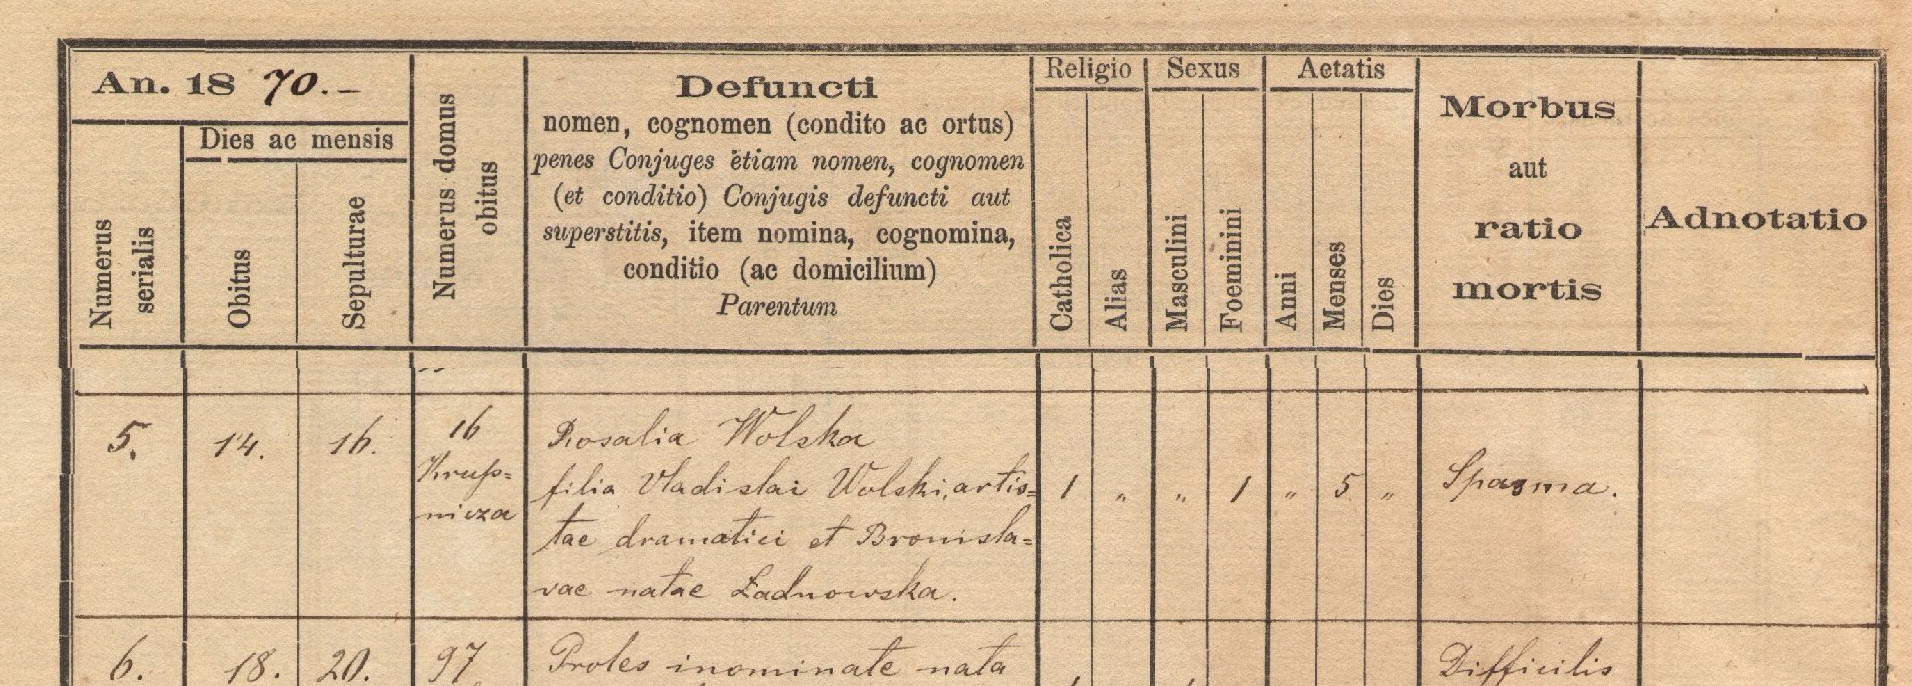 An. 18 70.-
Numerus serialis
Dies ac mensis
Obitus
Sepulturae
Numerus domus obitus
Defuncti
nomen, cognomen (condito ac ortus)
penes Conjuges ètiam nomen, cognomen
(et conditio) Conjugis defuncti aut
superstitis, item nomina, cognomina,
conditio (ac domicilium)
Parentum
Religio
Catholica
Alias
Sexus
Masculini
Foeminini
Aetatis
Anni
Menses
Dies
Morbus
aut
ratio
mortis
Adnotatio
5. 14. 16.
16
Krup=
nicza
Rosalia Wolska
filia Vladislai Wolski, artis=
tae dramatici et Bronisla=
vae natae Ładnowska.
1 " " 1 " 5 "
Spasma.
6. 18. 20. 97
Proles inominate nata
Difficilis